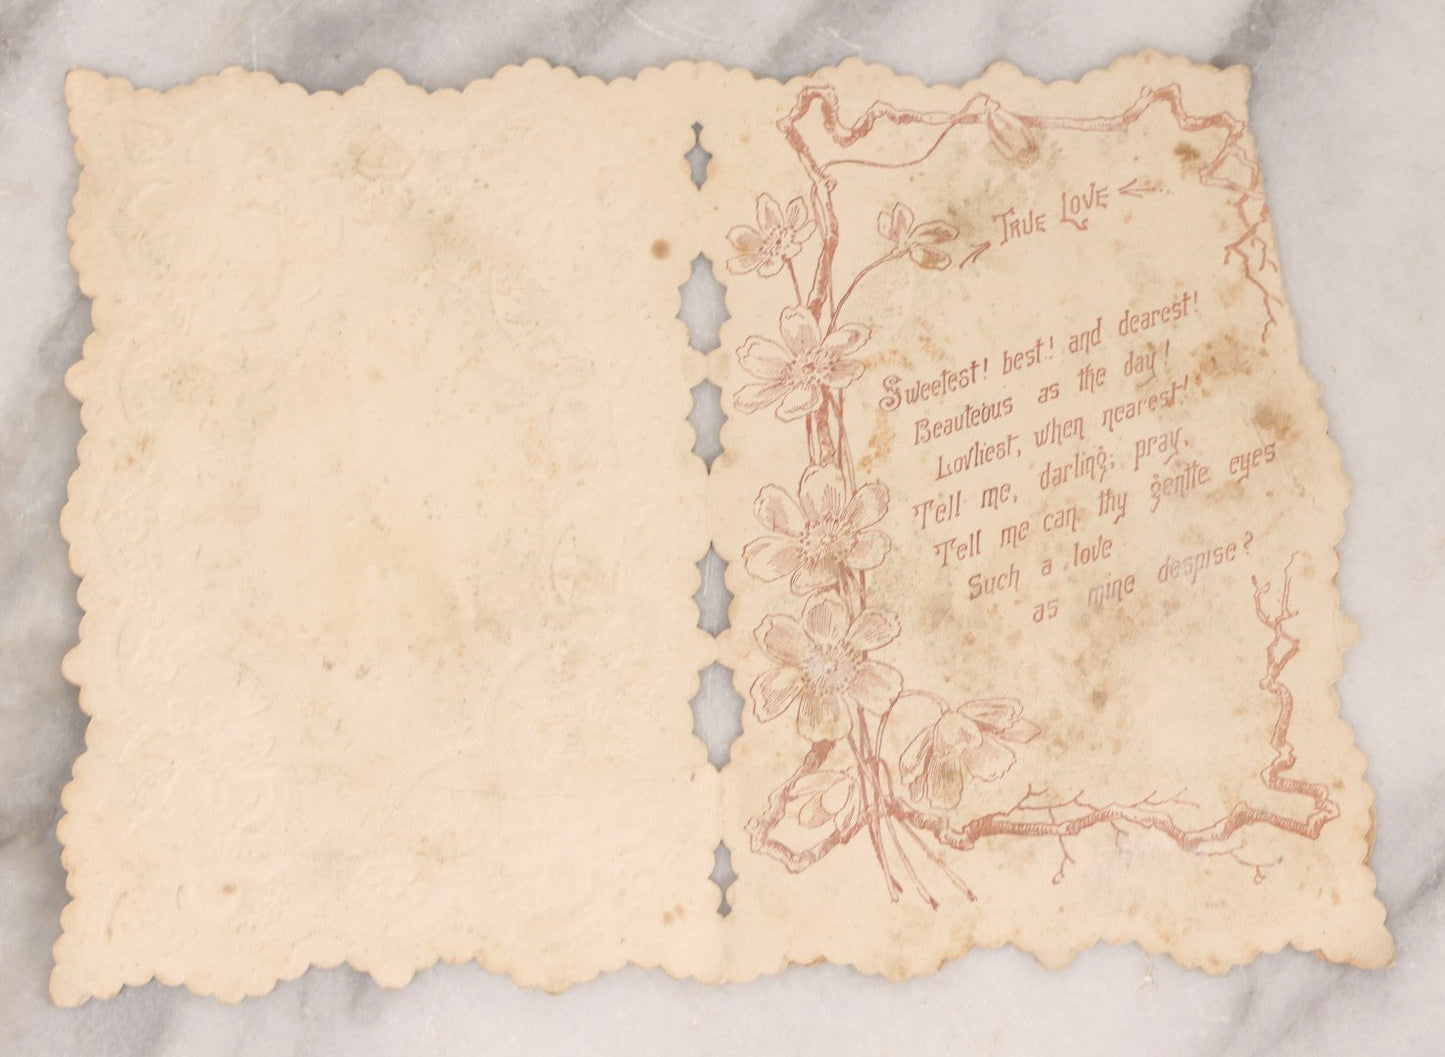 True Love
Sweetest! best! and dearest!
Beauteous as the day!
Lovliest, when nearest!
Tell me, darling; pray,
Tell me can thy gentle eyes
Such a love
as mine despise?